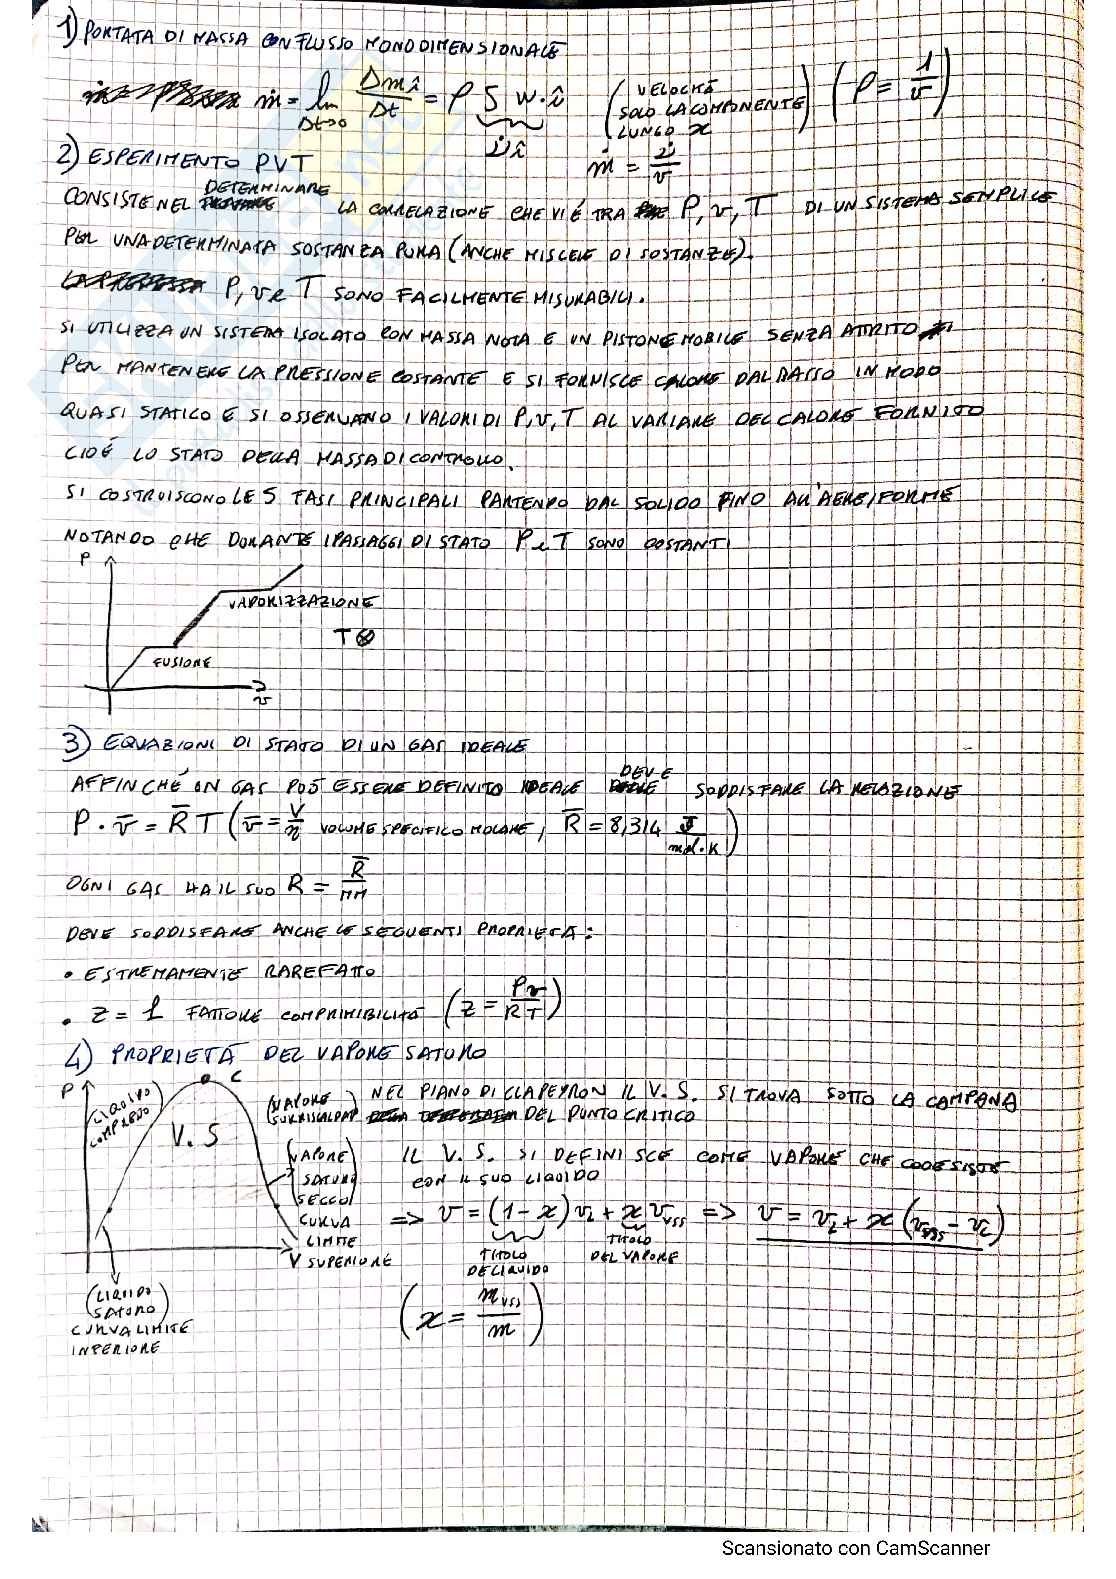 1) PORTATA DI MASSA CON FLUSSO MONODIMENSIONALE
ṁ = lim Δt→0 Δm_î/Δt = ρ S w·î (VELOCITÀ SOLO LA COMPONENTE LUNGO x) (ρ = 1/v)
V̇_î
ṁ = V̇/v
2) ESPERIMENTO PVT
CONSISTE NEL DETERMINARE LA CORRELAZIONE CHE VI É TRA P, v, T DI UN SISTEMA SEMPLICE
PER UNA DETERMINATA SOSTANZA PURA (ANCHE MISCELE DI SOSTANZE).
P, v e T SONO FACILMENTE MISURABILI.
SI UTILIZZA UN SISTEMA ISOLATO CON MASSA NOTA E UN PISTONE MOBILE SENZA ATTRITO
PER MANTENERE LA PRESSIONE COSTANTE E SI FORNISCE CALORE DAL BASSO IN MODO
QUASI STATICO E SI OSSERVANO I VALORI DI P, v, T AL VARIARE DEL CALORE FORNITO
CIOÉ LO STATO DELLA MASSA DI CONTROLLO.
SI COSTRUISCONO LE 5 FASI PRINCIPALI PARTENDO DAL SOLIDO FINO ALL'AERIFORME
NOTANDO CHE DURANTE I PASSAGGI DI STATO P e T SONO COSTANTI
P
VAPORIZZAZIONE
T ⊗
FUSIONE
v
3) EQUAZIONI DI STATO DI UN GAS IDEALE
AFFINCHÉ UN GAS PUÒ ESSERE DEFINITO IDEALE DEVE SODDISFARE LA RELAZIONE
P · v̄ = R̄ T (v̄ = V/n VOLUME SPECIFICO MOLARE, R̄ = 8,314 J/mol·K)
OGNI GAS HA IL SUO R = R̄/MM
DEVE SODDISFARE ANCHE LE SEGUENTI PROPRIETÀ:
• ESTREMAMENTE RAREFATTO
• Z = 1 FATTORE COMPRIMIBILITÀ (Z = Pv/RT)
4) PROPRIETÀ DEL VAPORE SATURO
P
C
(LIQUIDO COMPRESSO)
V. S
(VAPORE SURRISCALDATO)
(VAPORE SATURO SECCO)
CURVA
LIMITE
SUPERIORE
V
(LIQUIDO SATURO)
CURVA LIMITE
INFERIORE
NEL PIANO DI CLAPEYRON IL V. S. SI TROVA SOTTO LA CAMPANA
DEL PUNTO CRITICO
IL V. S. SI DEFINISCE COME VAPORE CHE COOESISTE
CON IL SUO LIQUIDO
=> v = (1-x) v_L + x v_vss => v = v_L + x (v_vss - v_L)
TITOLO DEL LIQUIDO
TITOLO DEL VAPORE
(x = m_vss/m)
Scansionato con CamScanner